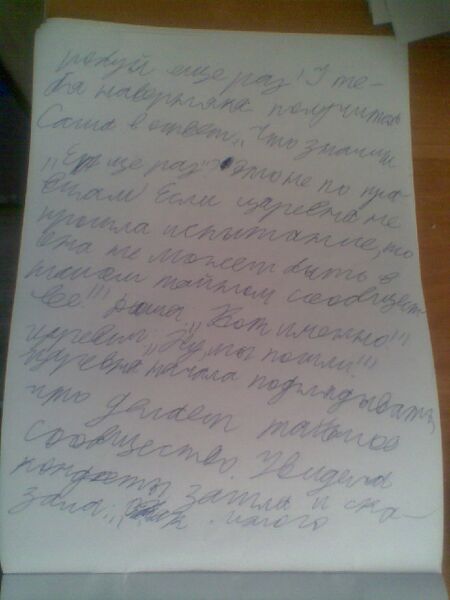 рокуй еще раз! У те-
бя наверняка получится
Саша в ответ „Что значит
„Еще раз"? Это не по пра-
вилам Если царевна не
прошла испытание, то
она не может быть в
нашем тайном сообщест-
ве!" Даша „Вот именно"
царевны: „Ну, мы пошли!"
Царевна начала подглядывать,
что делает тайное
сообщество. Увидела
конфеты зашла и ска-
зала: „